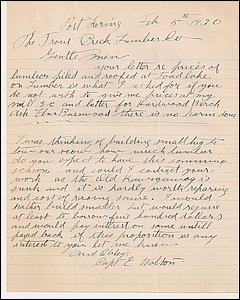 Port Loring Feb 5th 1920
The Trout Creek Lumber Co
Gentle men
your letter re prices of
lumber piled and roofed at Toad lake
on Lumber is what I asked for if you
do not wish to give me prices at my
mill S.C and better for Hardwood Birch
Ash Elm Basswood there is no harm done
I was thinking of building small tug to
tow our scow how much lumber
do you expect to have this comming
season and could I contract your
work as the old Kawigamog is
sunk and it is hardly worth repairing
and cost of raising same. I would
rather build smaller but would require
at least to borrow five hundred dollars
and would pay interest on same untill
payed back if this proposition is any
interest to you let me know
and oblige
Capt E Walton